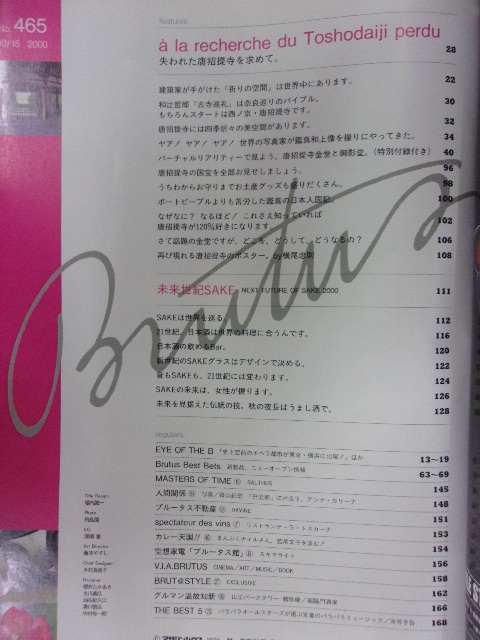 No. 465
10/15 2000
features
à la recherche du Toshodaiji perdu 28
失われた唐招提寺を求めて。
建築家が手がけた「祈りの空間」は世界中にあります。 22
和辻哲郎『古寺巡礼』は奈良巡りのバイブル。 30
もちろんスタートは西ノ京・唐招提寺です。
唐招提寺には四季折々の美空間があります。 32
ヤアノ ヤアノ ヤアノ 世界の写真家が鑑真和上像を撮りにやってきた。 34
バーチャルリアリティーで見よう、唐招提寺金堂と御影堂。(特別付録付き) 40
唐招提寺の国宝を全部お見せしましょう。 96
うちわからお守りまでお土産グッズも盛りだくさん。 98
ボートピープルよりも苦労した鑑真の日本入国記。 100
なぜなに? なるほど! これさえ知っていれば
唐招提寺が120%好きになります。 102
さて話題の金堂ですが、どこを、どうして、どうなるの? 106
再び現れる唐招提寺のポスター。by横尾忠則 108
Brutus
未来世紀SAKE NEXT FUTURE OF SAKE 2000 111
SAKEは世界を巡る。 112
21世紀、日本酒は世界の料理に合うんです。 116
日本酒の飲めるBar。 120
新世紀のSAKEグラスはデザインで決める。 122
音もSAKEも、21世紀には変わります。 124
SAKEの未来は、女性が握ります。 126
未来を見据えた伝統の技。秋の夜長はうまし酒で。 128
regulars
EYE OF THE B 13〜19
Brutus Best Bets 新製品、ニューオープン情報 63〜69
MASTERS OF TIME BALTHUS
人間関係 145
ブルータス不動産 RAVINE 148
spectateur des vins 151
カレー天国!! 153
空想家電「ブルータス館」 154
V.I.A.BRUTUS CINEMA/ART/MUSIC/BOOK 156
BRUT@STYLE EXCLUSIVE 158
グルマン温故知新 162
THE BEST 5 168
Title Design
堀内誠一
Photo
CG
Art Director
Chief Designer
Designer